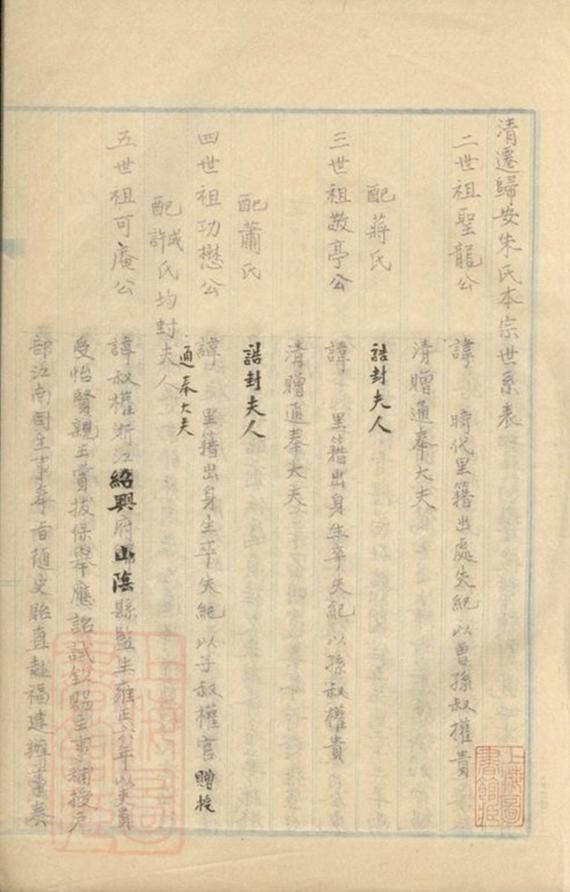 清遷歸安朱氏本宗世系表
二世祖聖龍公 諱 時代里籍出處失紀以曾孫叔權貴
清贈通奉大夫
配蔣氏 誥封夫人
三世祖敬亭公 諱 里籍出身生卒失紀以孫叔權貴
清贈通奉大夫
配蕭氏 誥封夫人
四世祖功懋公 諱 里籍出身生卒失紀以子叔權官贈授
通奉大夫
配許戚氏均封夫人
五世祖可庵公 諱叔權浙江紹興府山陰縣監生雍正 年以
受怡賢親王賞拔保舉應詔試欽賜主事補授戶
部江南司主事奉旨隨史貽直赴福建辦事奏
上海圖書館藏